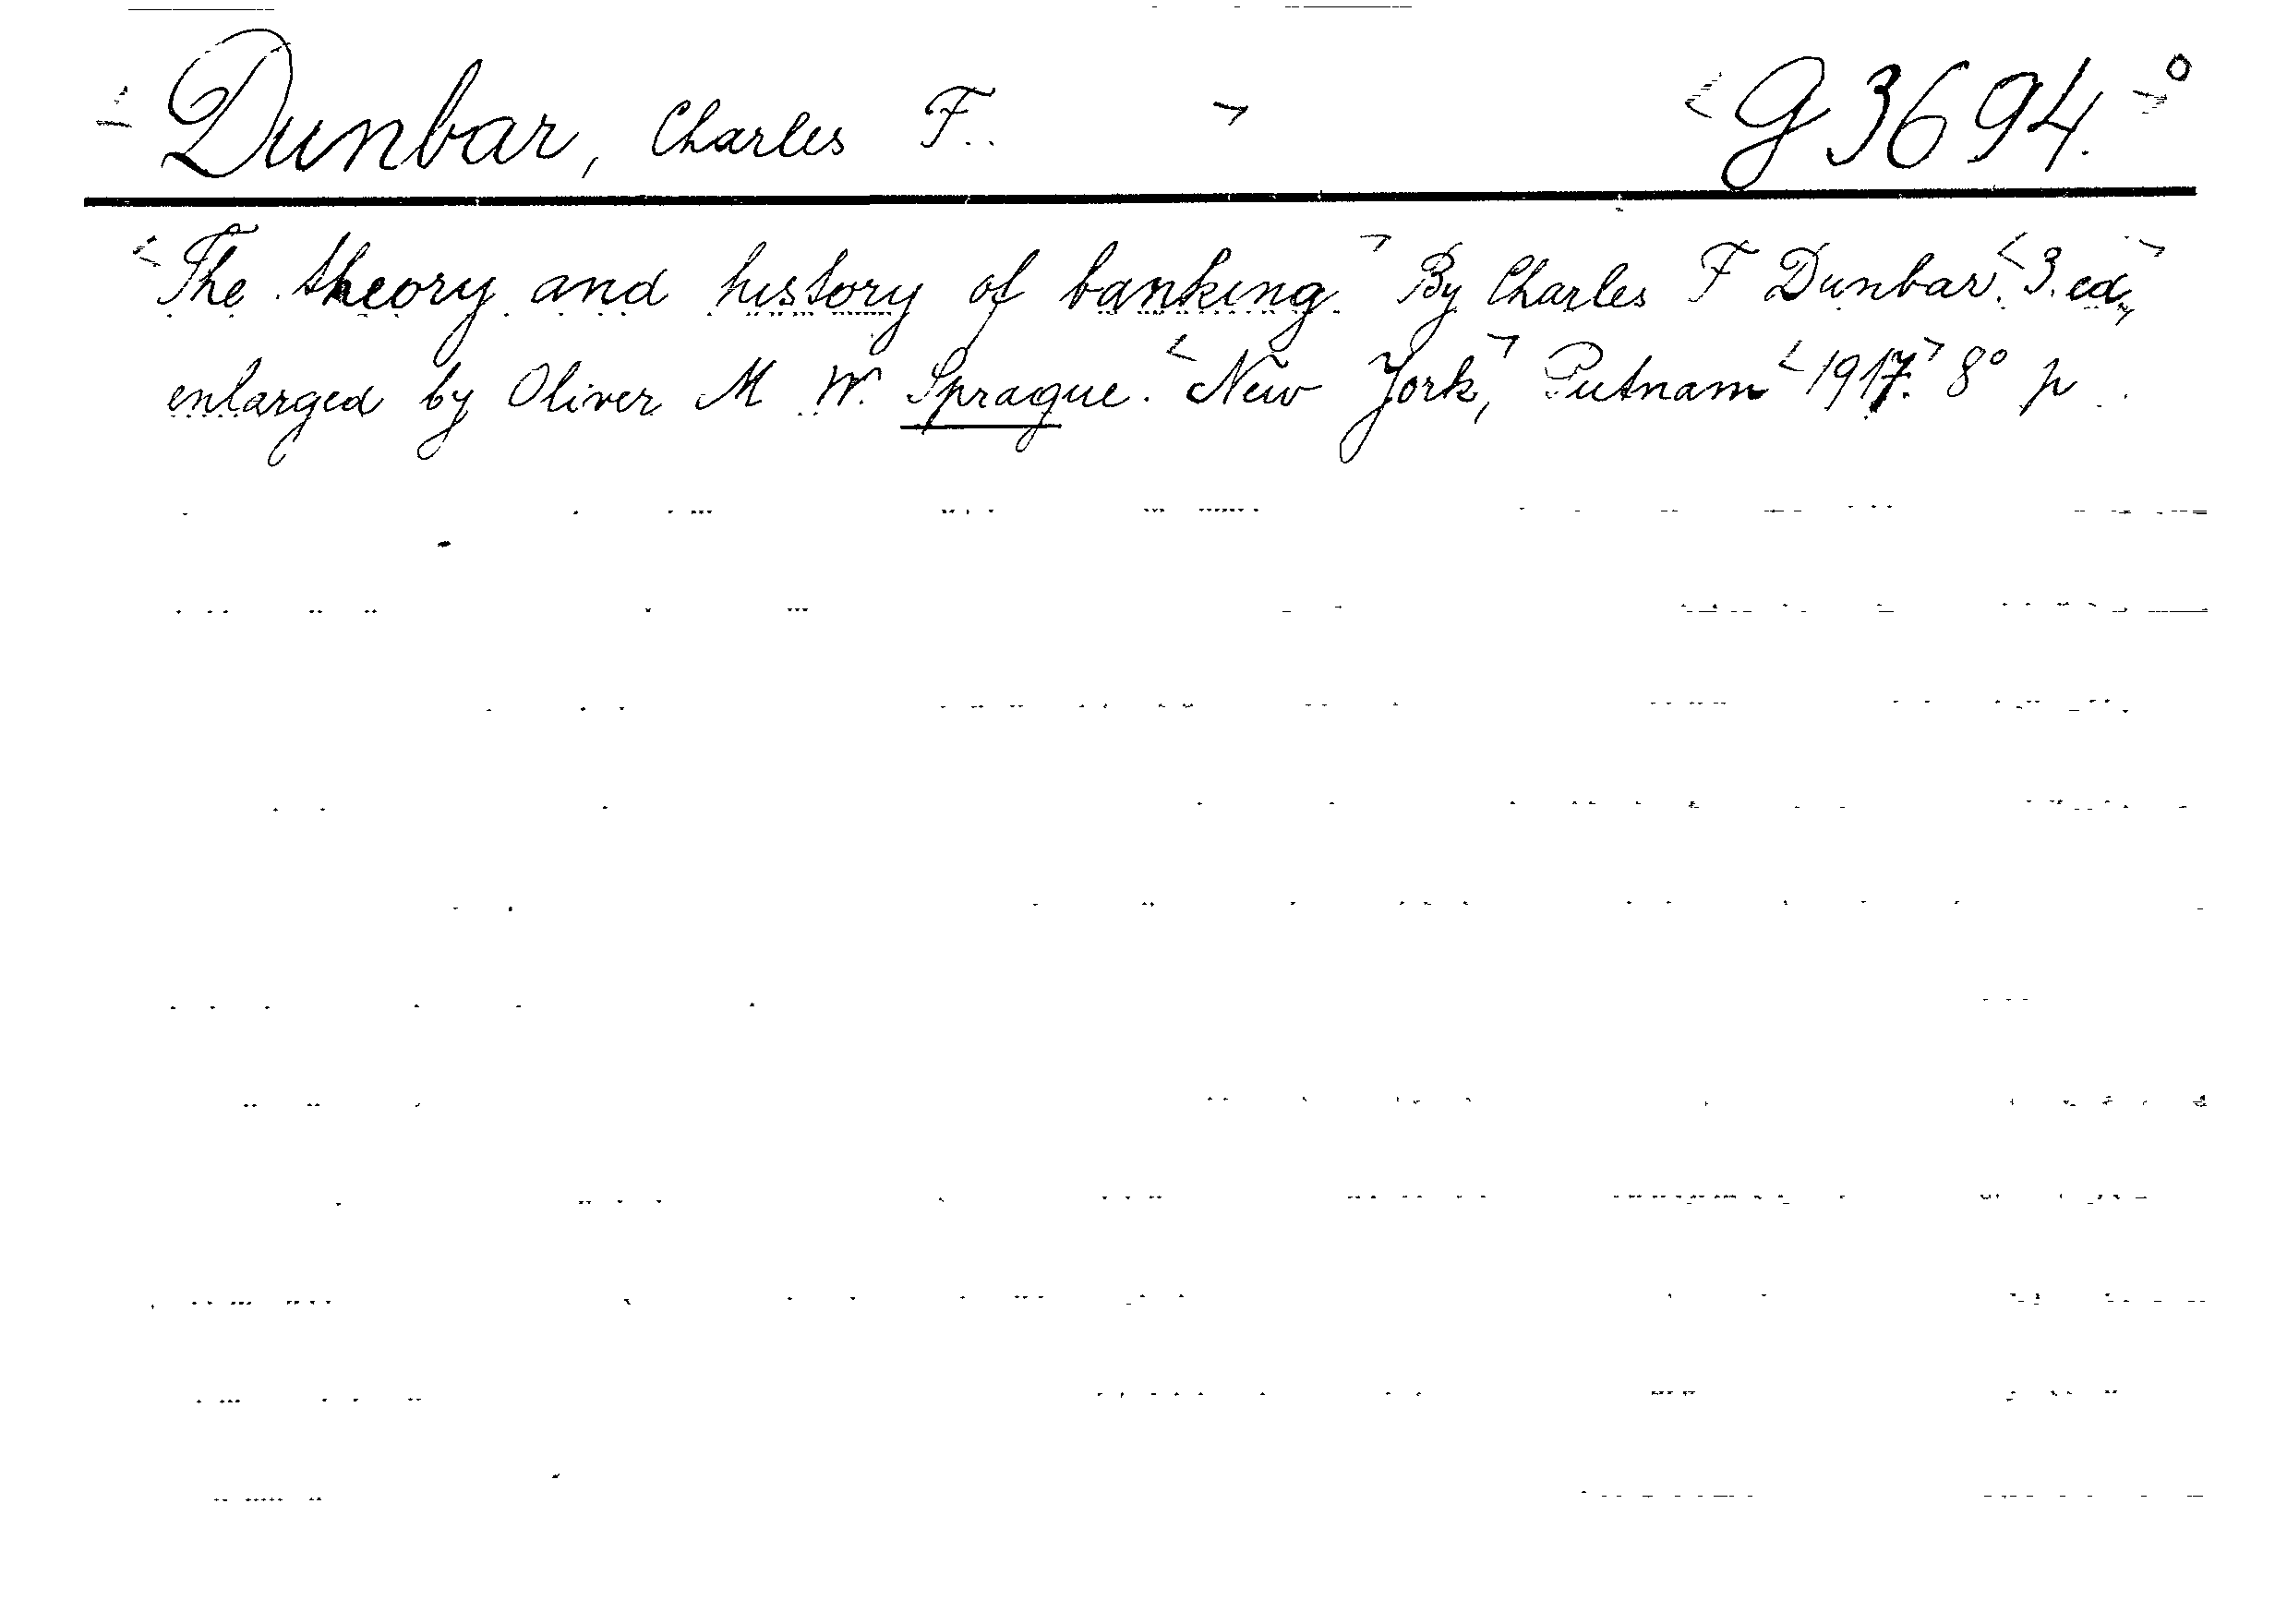 Dunbar, Charles F. G 3694.°
The theory and history of banking. By Charles F Dunbar. 3. ed.,
enlarged by Oliver M W. Sprague. New York, Putnam 1917. 8° p